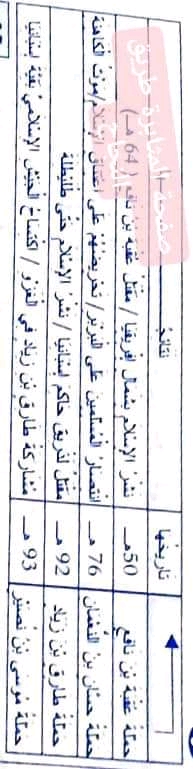 تاريخها نتائج
حملة عقبة بن نافع 50هـ نشر الإسلام بشمال إفريقيا / مقتل عقبة بن نافع (64 هـ)
حملة حسان بن النعمان 76 هـ انتصار المسلمين على البربر / تحريضهم على اعتناق الإسلام / موت الكاهنة
حملة طارق بن زياد 92 هـ مقتل لذريق حاكم إسبانيا / نشر الإسلام حتى طليطلة
حملة موسى بن نصير 93 هـ مشاركة طارق بن زياد في الغزو / اكتساح الجيش الإسلامي بقية إسبانيا
صفحة المثابرة طريق النجاح